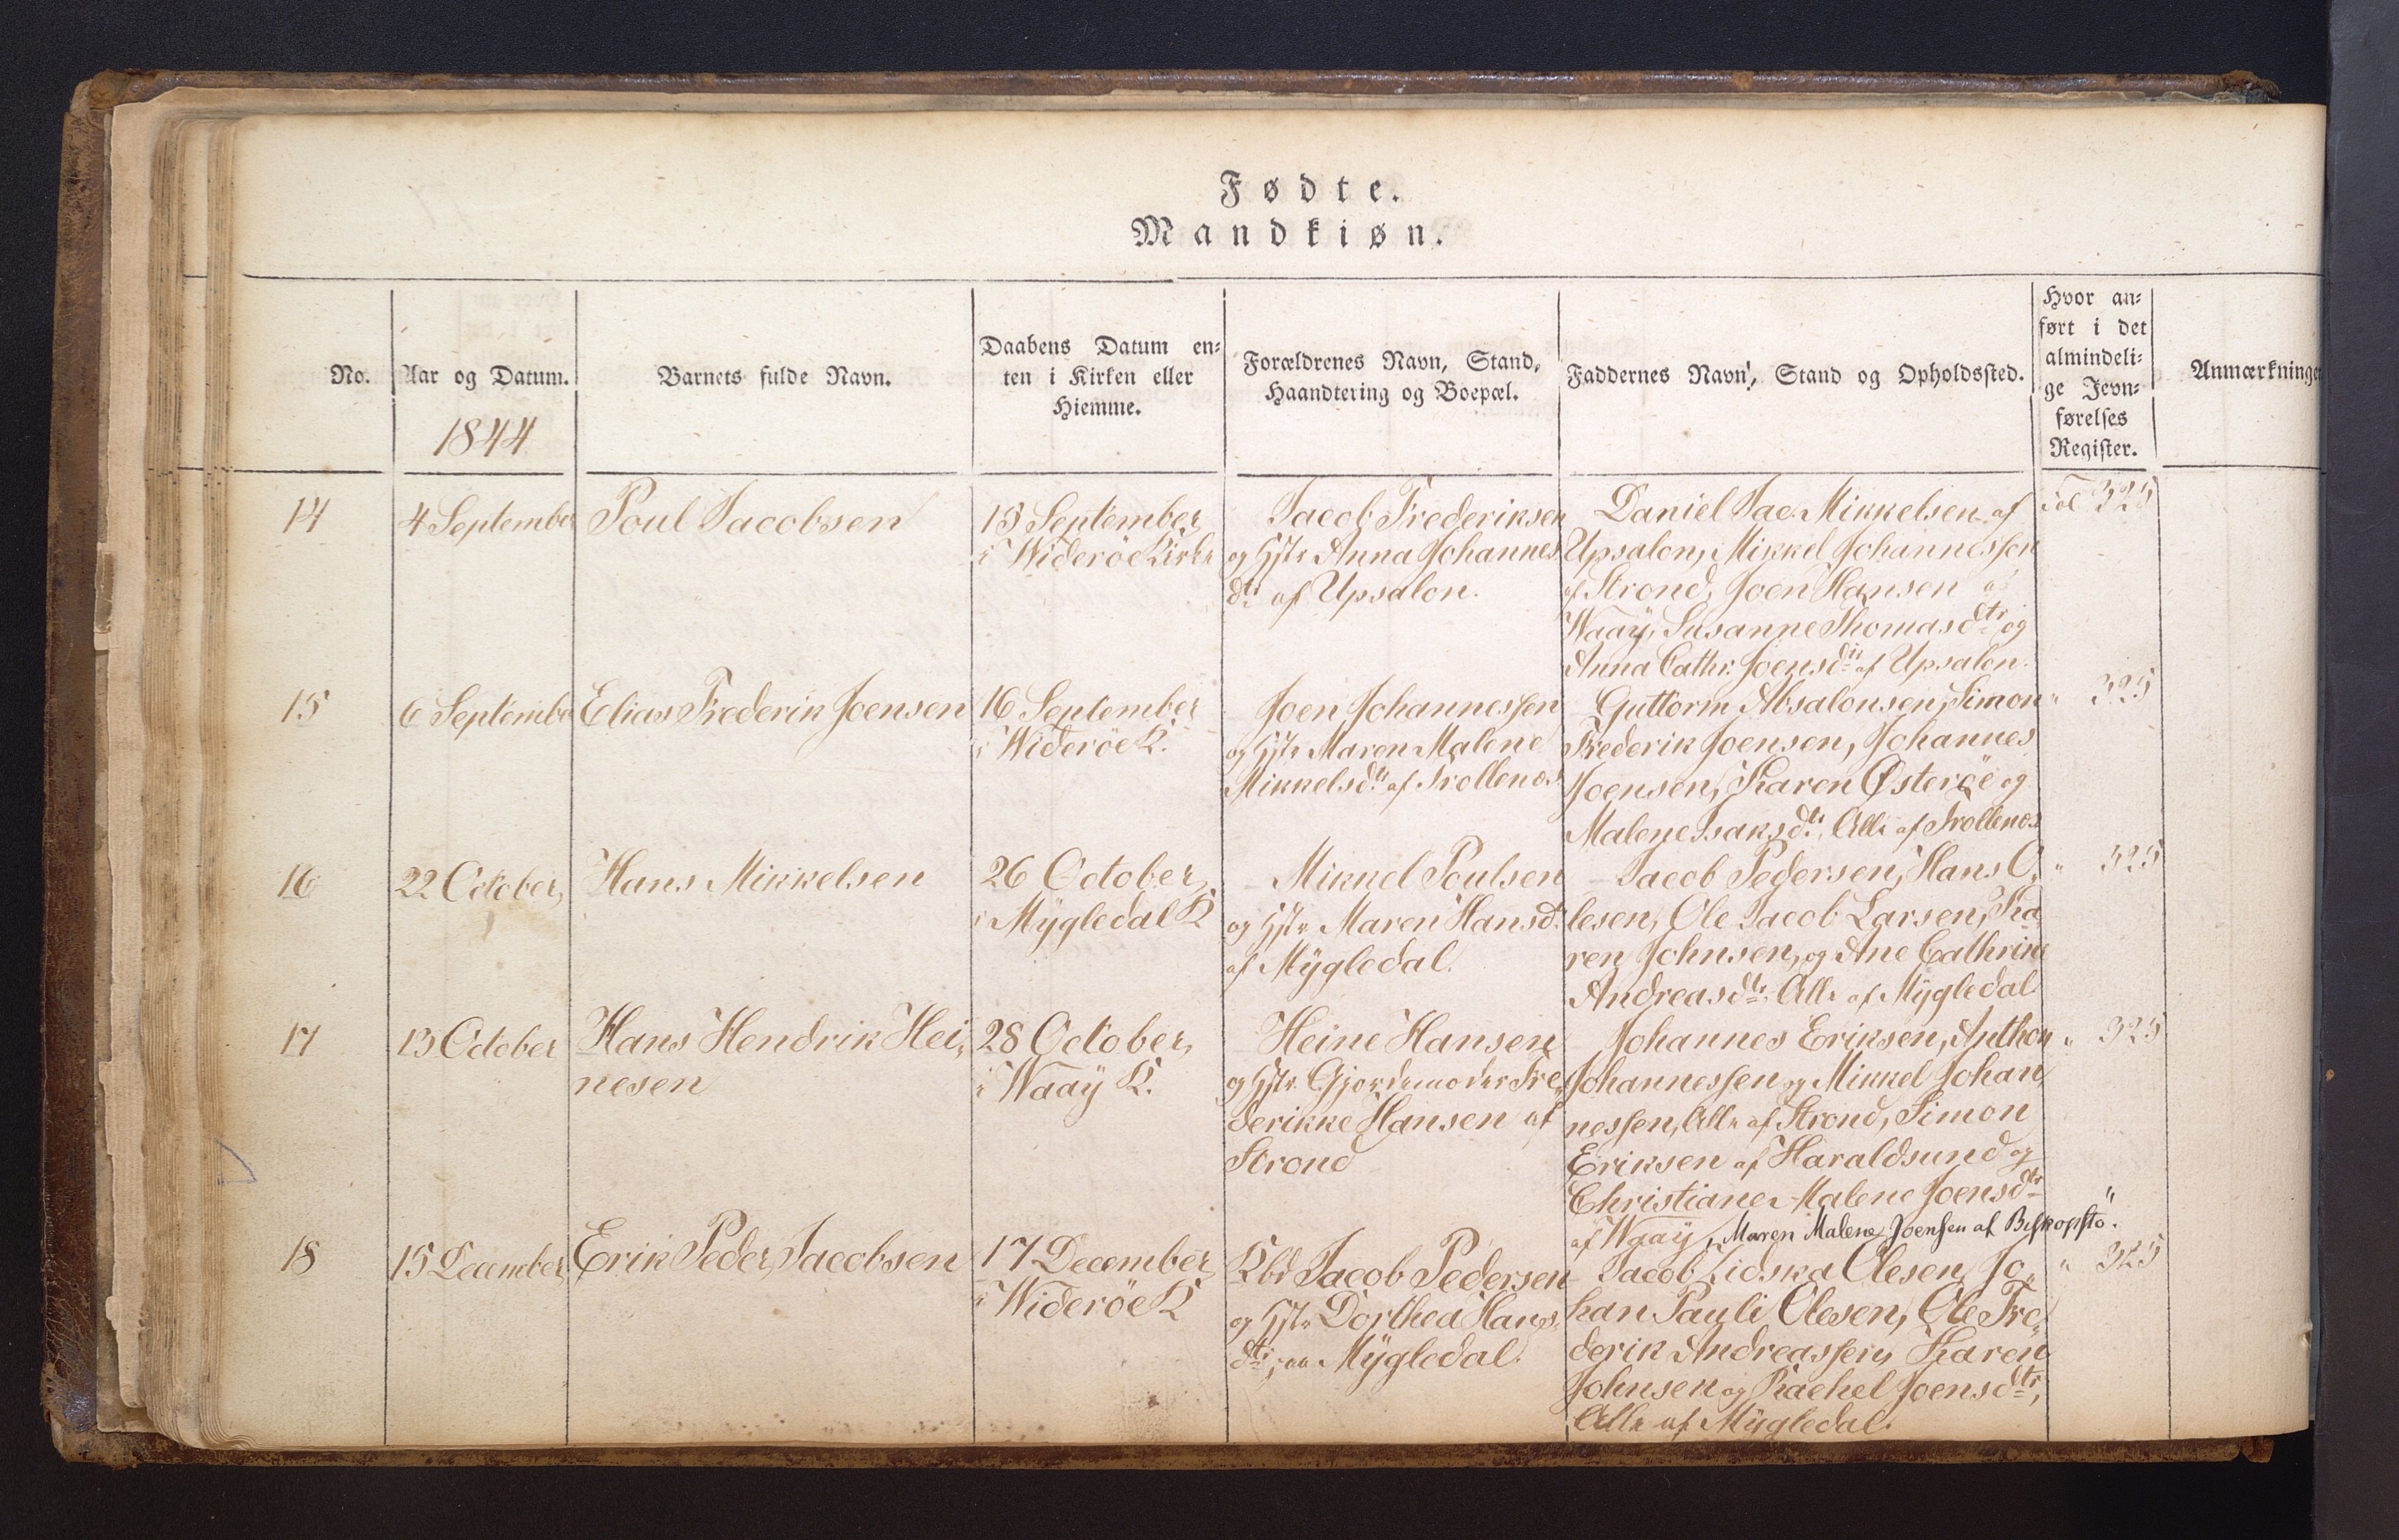 Fødte.
Mandkiøn.
No.
Aar og Datum.
1844
Barnets fulde Navn.
Daabens Datum en-
ten i Kirken eller
Hiemme.
Forældrenes Navn, Stand,
Haandtering og Boepæl.
Faddernes Navn, Stand og Opholdssted.
Hvor an-
ført i det
almindeli-
ge Jevn-
førelses
Register.
Anmærkninger
14
4 September
Poul Jacobsen
13 September
i Widerøe Kirke
Jacob Frederiksen
og Hstr Anna Johannes
dtr af Upsalon.
Daniel Jac. Mikkelsen af
Upsalon, Mikkel Johannessen
af Strond, Joen Hansen af
Waaÿ, Susanne Thomasdtr og
Anna Cathr. Joensdtr af Upsalon.
Fol 325
15
6 September
Elias Frederik Joensen
16 September
i Widerøe K.
Joen Johannessen
og Hstr Maren Malene
Mikkelsdtr af Trollenæs
Guttorm Absalonsen, Simon
Frederik Joensen, Johannes
Joensen, Karen Østerøe og
Malene Isaksdtr, Alle af Trollenæs
" 325
16
22 October,
Hans Mikkelsen
26 October,
i Mÿgledal K
Mikkel Poulsen
og Hstr Maren Hansd.
af Mÿgledal.
Jacob Pedersen, Hans O,
lesen, Ole Jacob Larsen, Ka
ren Johnsen, og Ane Cathrine
Andreasdtr. Alle af Mÿgledal
" 325
17
13 October
Hans Hendrik Hei,
nesen
28 October,
i Waaÿ K.
Heine Hansen
og Hstr. Gjordemoder Fre,
derikke Hansen af
Strond
Johannes Eriksen, Anthon
Johannessen og Mikkel Johan,
nessen, Alle af Strond, Simon
Eriksen af Haraldsund og
Christiane Malene Joensdtr
af Waaÿ, Maren Malene Joensen af Biskopsto.
" 325
18
15 December
Erik Peder Jacobsen
17 December,
i Widerøe K
Kbd Jacob Pedersen
og Hstr Dorthea Hans,
dtr, aa Mÿgledal.
Jacob Lidska Olesen, Jo,
han Pauli Olesen, Ole Fre,
derik Andreassen, Karen
Johnsen og Rachel Joensdtr,
Alle af Mÿgledal.
" 325